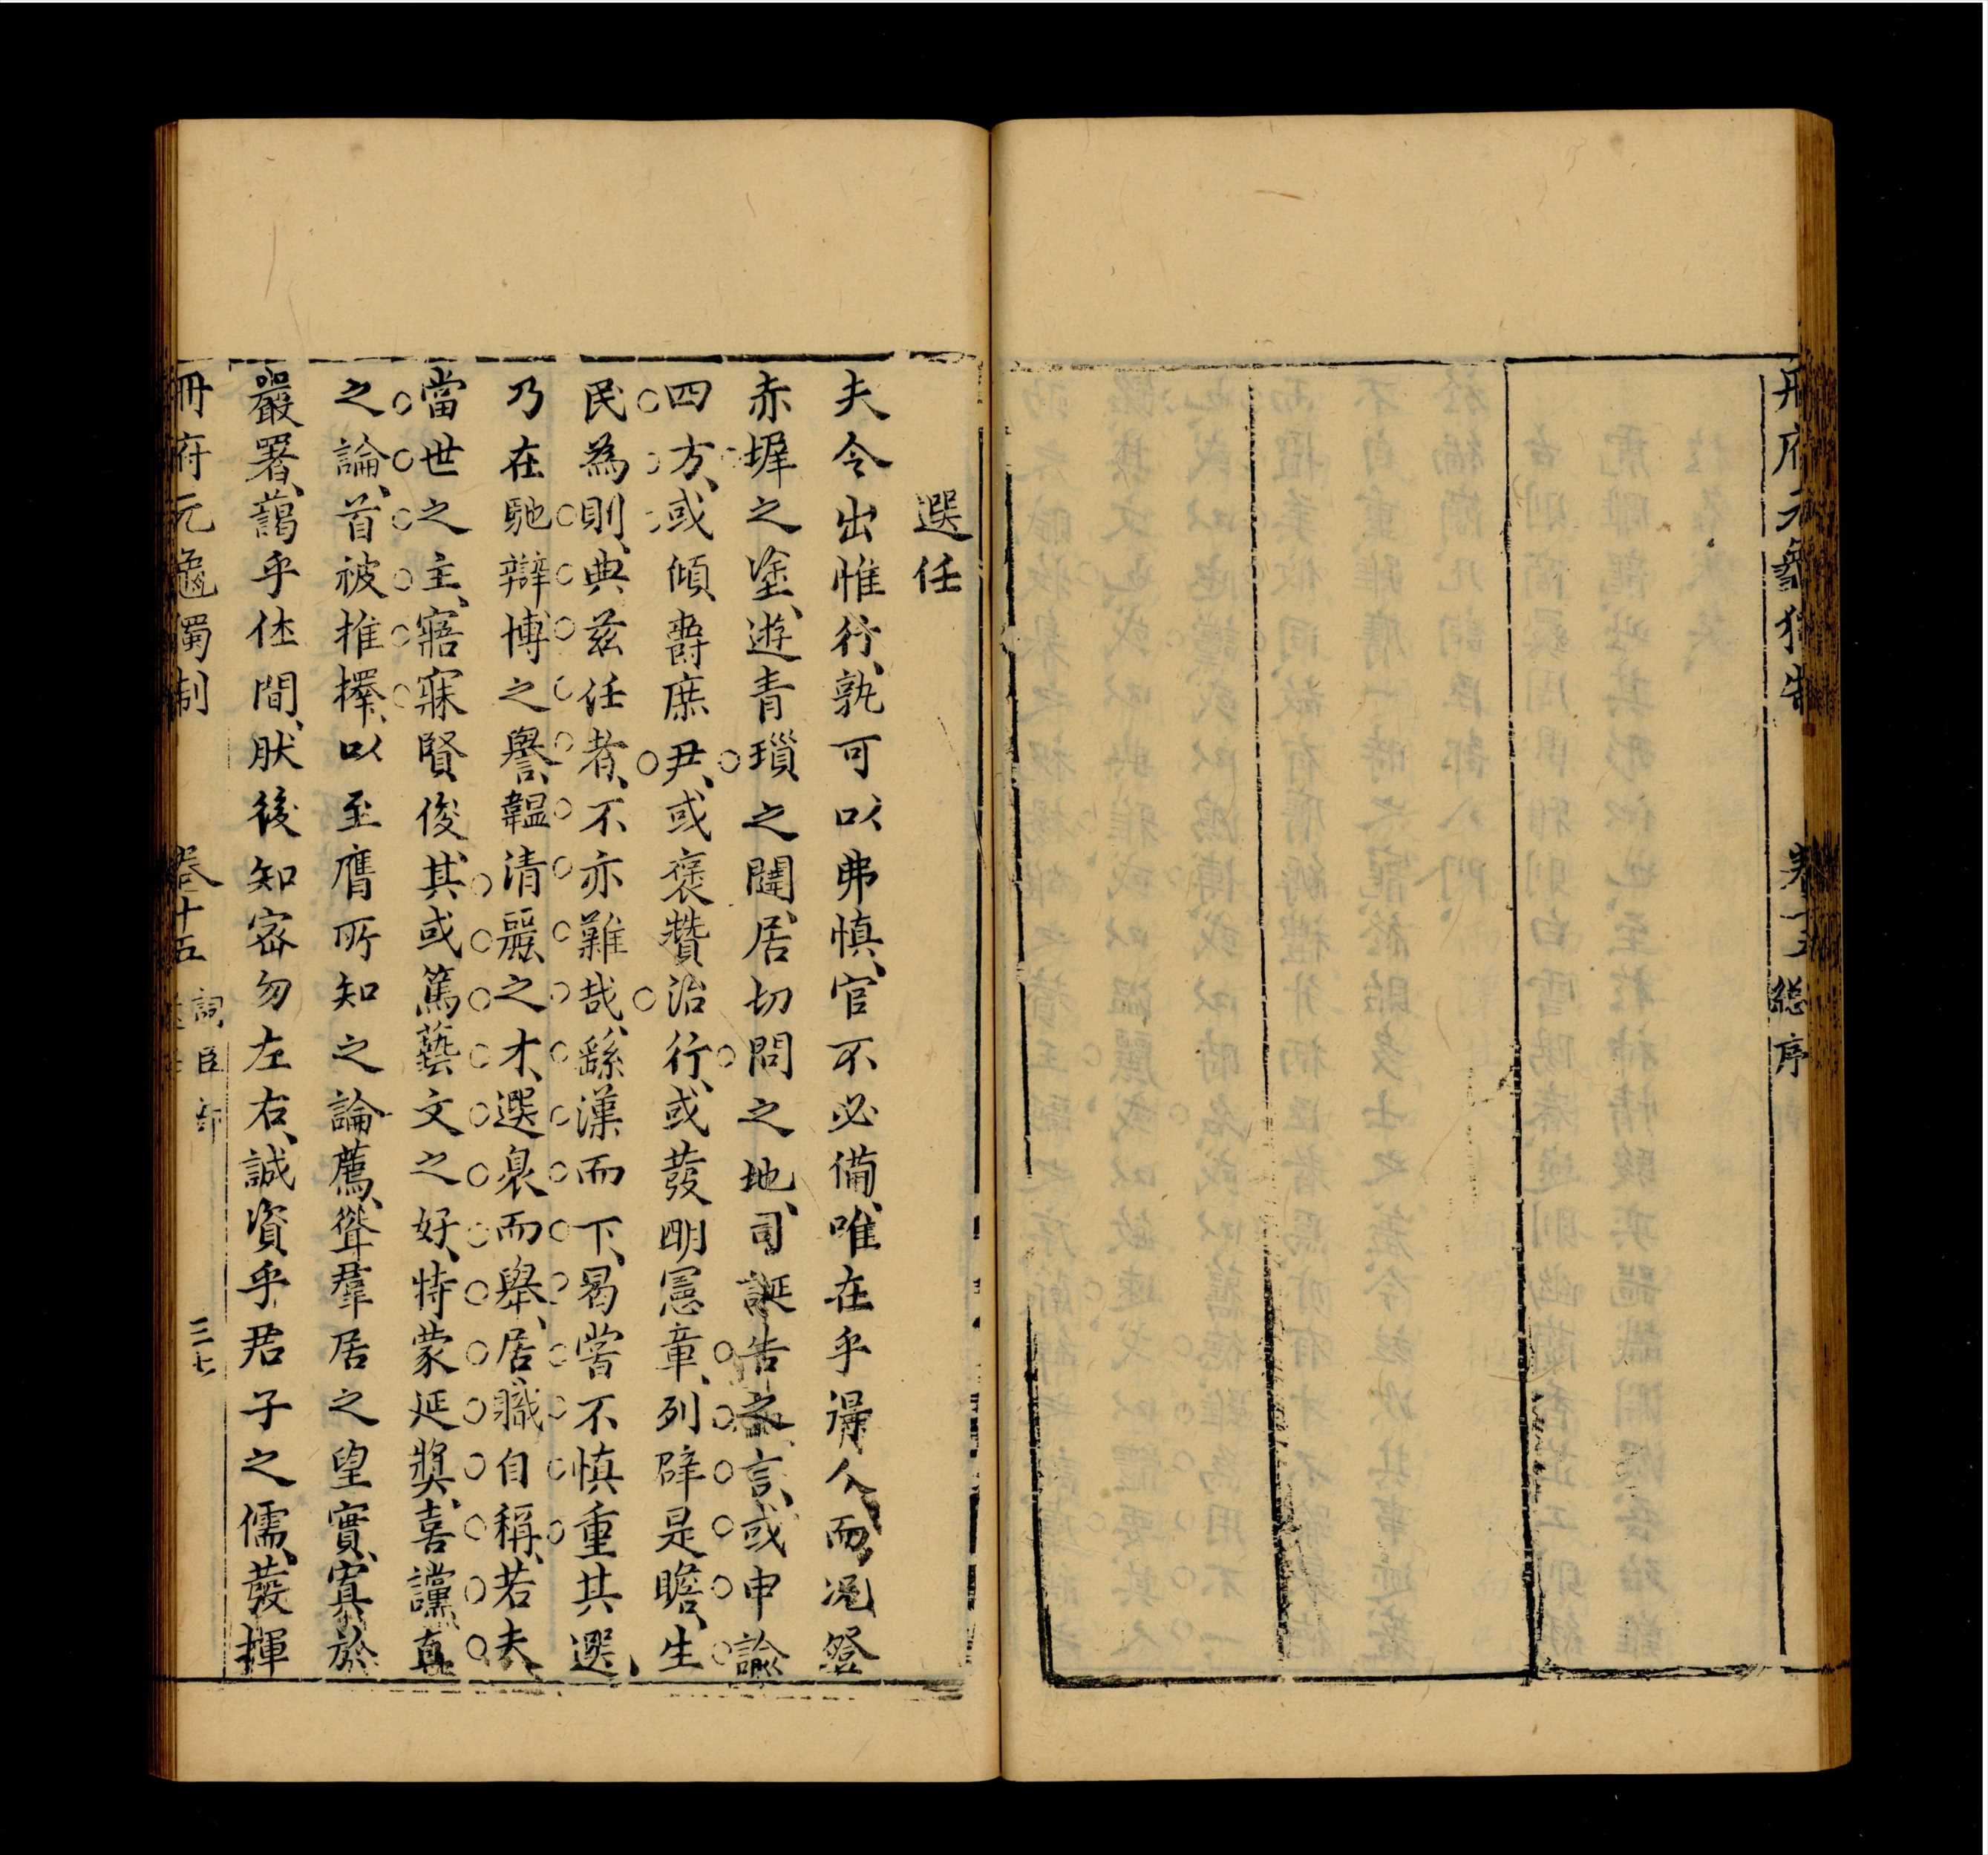 冊府元龜獨制 卷十五 總序
選任
夫令出惟行、孰可以弗慎、官不必備、唯在乎得人、而况登
赤墀之塗、遊青瑣之闥、居切問之地、司誕告之言、或申諭
四方、或傾爵庶尹、或褒贊治行、或發明憲章、列辟是瞻、生
民為則、典茲任者、不亦難哉、繇漢而下、曷嘗不慎重其選、
乃在馳辯博之譽、韞清麗之才、選衆而舉、居職自稱、若夫
當世之主、寤寐賢俊、其或篤藝文之好、特蒙延獎、喜讜直
之論、首被推擇、以至膺所知之論薦、聳羣居之望實、寘於
嚴署、藹乎伾間、肰後知密勿左右、誠資乎君子之儒、發揮
冊府元龜獨制 卷十五 詞臣部 三七